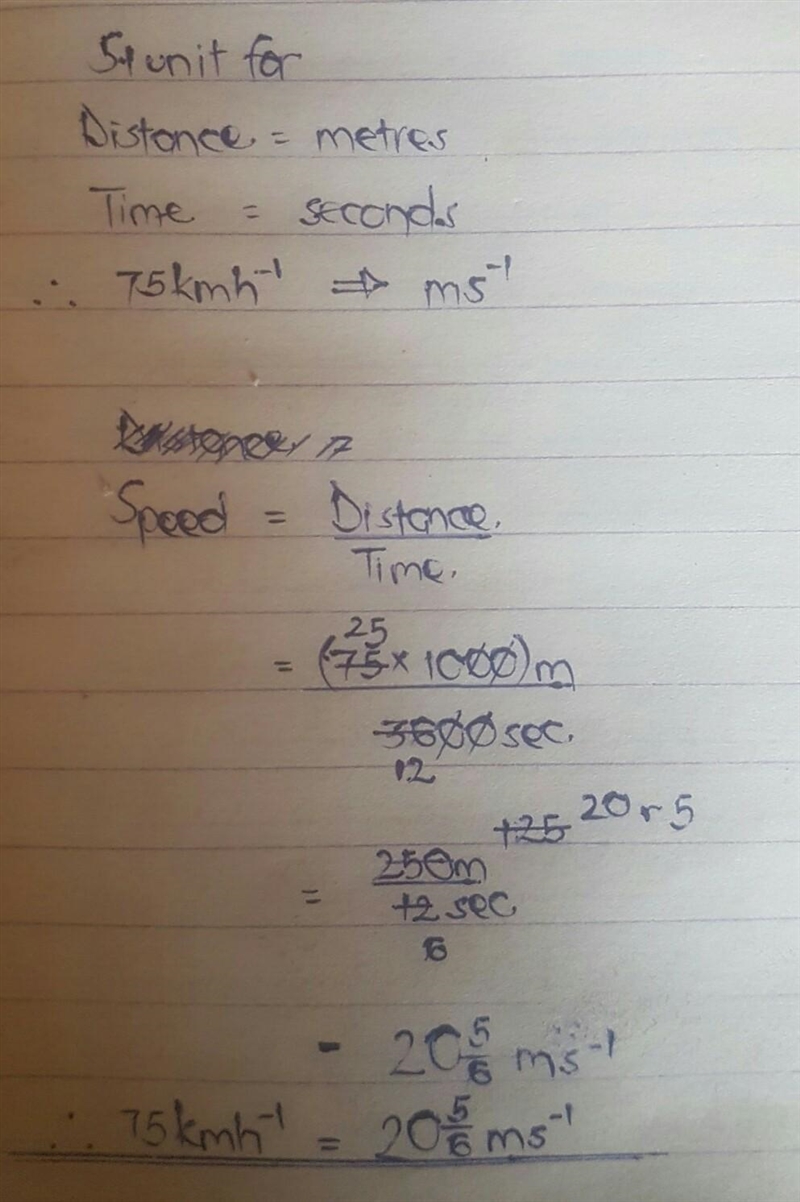 SI unit for
Distance = metres
Time = seconds
∴ 75kmh⁻¹ ⇒ ms⁻¹
Speed = Distance.
Time.
25
= (75 × 1000)m
3600sec.
12
125 20 r 5
= 250m
12 sec
6
= 20 5/6 ms⁻¹
∴ 75kmh⁻¹ = 20 5/6 ms⁻¹